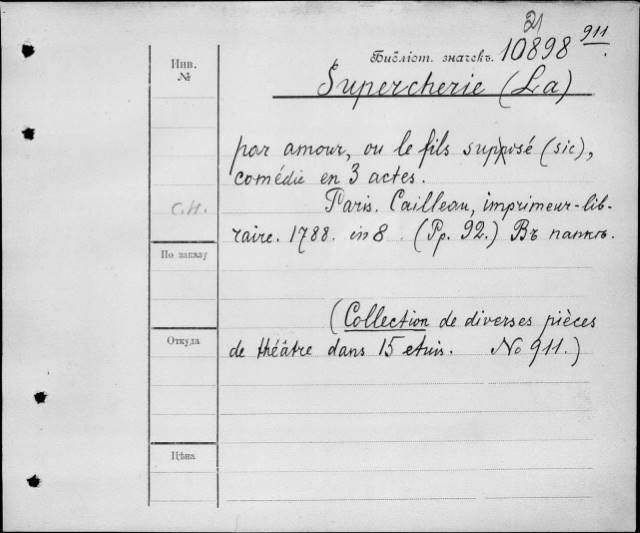 21
Инв. №
Библіот. значекъ. 10898 911.
Supercherie (La)
par amour, ou le fils supposé (sic),
comédie en 3 actes.
С.Н.
Paris. Cailleau, imprimeur-lib-
raire. 1788. in 8. (Pp. 92.) Въ папкѣ.
По заказу
(Collection de diverses pièces
Откуда
de théâtre dans 15 etuis. No 911.)
Цѣна